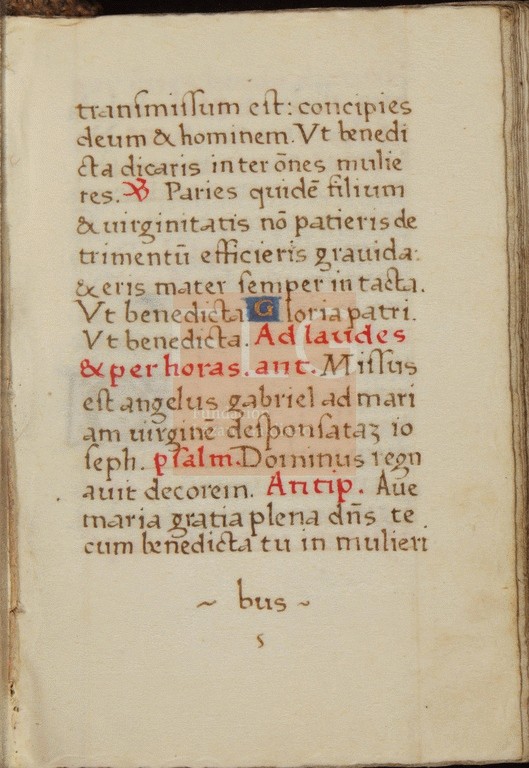 transmissum est: concipies
deum & hominem. Vt benedi
cta dicaris inter o͞nes mulie
res. ℣ Paries quidē filium
& uirginitatis nō patieris de
trimentū efficieris grauida:
& eris mater semper intacta.
Vt benedicta Gloria patri.
Vt benedicta. Ad laudes
& per horas. ant. Missus
est angelus gabriel ad mari
am uirginē desponsataꝫ io
seph. psalm. Dominus regn
auit decorem. Antip. Aue
maria gratia plena dn̄s te
cum benedicta tu in mulieri
~ bus ~